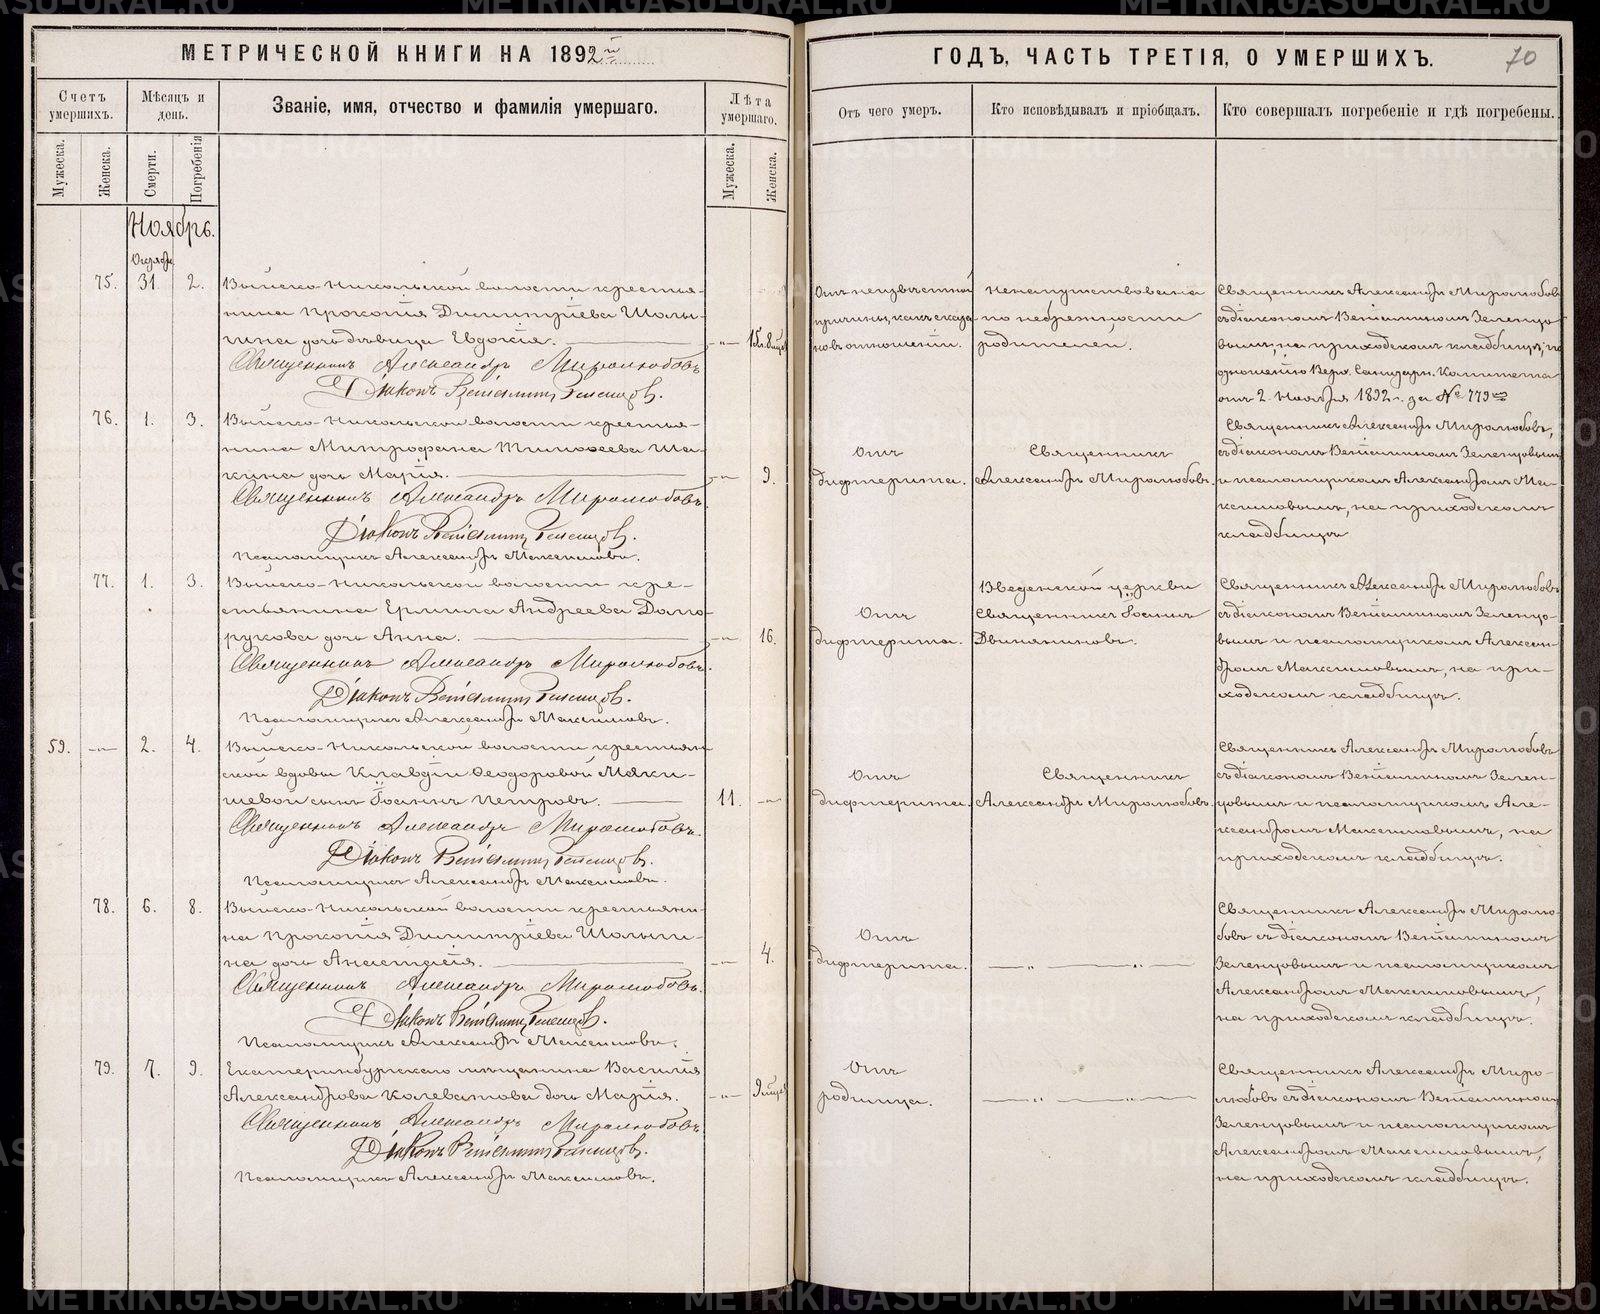 МЕТРИЧЕСКОЙ КНИГИ НА 1892й
ГОДЪ, ЧАСТЬ ТРЕТІЯ, О УМЕРШИХЪ.
70
Счетъ умершихъ.
Мѣсяцъ и день.
Званіе, имя, отчество и фамилія умершаго.
Лѣта умершаго.
Отъ чего умеръ.
Кто исповѣдывалъ и пріобщалъ.
Кто совершалъ погребеніе и гдѣ погребены.
Мужеска.
Женска.
Смерти.
Погребенія
Мужеска.
Женска.
Ноябрь.
Октября
75. 31 2.
Выйско-Никольской волости крестья-
нина Прокопія Димитріева Шолы-
гина дочь дѣвица Евдокія.
Священникъ Александръ Миролюбовъ
Діаконъ Веніаминъ Зеленцовъ.
Отъ неизвѣстной
причины, какъ сказа-
но въ отношеніи.
не напутствована
по небрежности
родителей.
Священникъ Александръ Миролюбовъ
съ діакономъ Веніаминомъ Зеленцо-
вымъ, на приходскомъ кладбищѣ, по
отношенію Верх. Санитарн. Комитета
отъ 2 Ноября 1892 г. за № 779
76. 1. 3.
Выйско-Никольской волости крестья-
нина Митрофана Тимоѳеева Ша-
кина дочь Марія.
9.
Священникъ Александръ Миролюбовъ.
Діаконъ Веніаминъ Зеленцовъ.
Псаломщикъ Александръ Максимовъ.
Отъ
дифтерита.
Священникъ
Александръ Миролюбовъ.
Священникъ Александръ Миролюбовъ,
съ діакономъ Веніаминомъ Зеленцовымъ
и псаломщикомъ Александромъ Ма-
ксимовымъ, на приходскомъ
кладбищѣ
77. 1. 3.
Выйско-Никольской волости кре-
стьянина Ермила Андреева Долго-
рукова дочь Анна.
16.
Священникъ Александръ Миролюбовъ.
Діаконъ Веніаминъ Зеленцовъ.
Псаломщикъ Александръ Максимовъ.
Отъ
дифтерита.
Введенской церкви
Священникъ Іоаннъ
Двиняниновъ.
Священникъ Александръ Миролюбовъ
съ діакономъ Веніаминомъ Зеленцо-
вымъ и псаломщикомъ Алексан-
дромъ Максимовымъ, на при-
ходскомъ кладбищѣ.
59. 2. 4.
Выйско-Никольской волости крестьян-
ской вдовы Клавдіи Ѳеодоровой Мяки-
шевой сынъ Іоаннъ Петровъ.
11.
Священникъ Александръ Миролюбовъ.
Діаконъ Веніаминъ Зеленцовъ.
Псаломщикъ Александръ Максимовъ.
Отъ
дифтерита.
Священникъ
Александръ Миролюбовъ.
Священникъ Александръ Миролюбовъ
съ діакономъ Веніаминомъ Зелен-
цовымъ и псаломщикомъ Але-
ксандромъ Максимовымъ, на
приходскомъ кладбищѣ.
78. 6. 8.
Выйско-Никольской волости крестьяни-
на Прокопія Димитріева Шолыги-
на дочь Анастасія.
4.
Священникъ Александръ Миролюбовъ.
Діаконъ Веніаминъ Зеленцовъ.
Псаломщикъ Александръ Максимовъ.
Отъ
дифтерита.
Священникъ Александръ Миролю-
бовъ съ діакономъ Веніаминомъ
Зеленцовымъ и псаломщикомъ
Александромъ Максимовымъ,
на приходскомъ кладбищѣ.
79. 7. 9.
Екатеринбургскаго мѣщанина Василія
Александрова Колеватова дочь Марія.
Священникъ Александръ Миролюбовъ
Діаконъ Веніаминъ Зеленцовъ.
Псаломщикъ Александръ Максимовъ.
Отъ
родимца.
Священникъ Александръ Миро-
любовъ съ діакономъ Веніаминомъ
Зеленцовымъ и псаломщикомъ
Александромъ Максимовымъ,
на приходскомъ кладбищѣ.
METRIKI.GASU-URAL.RU